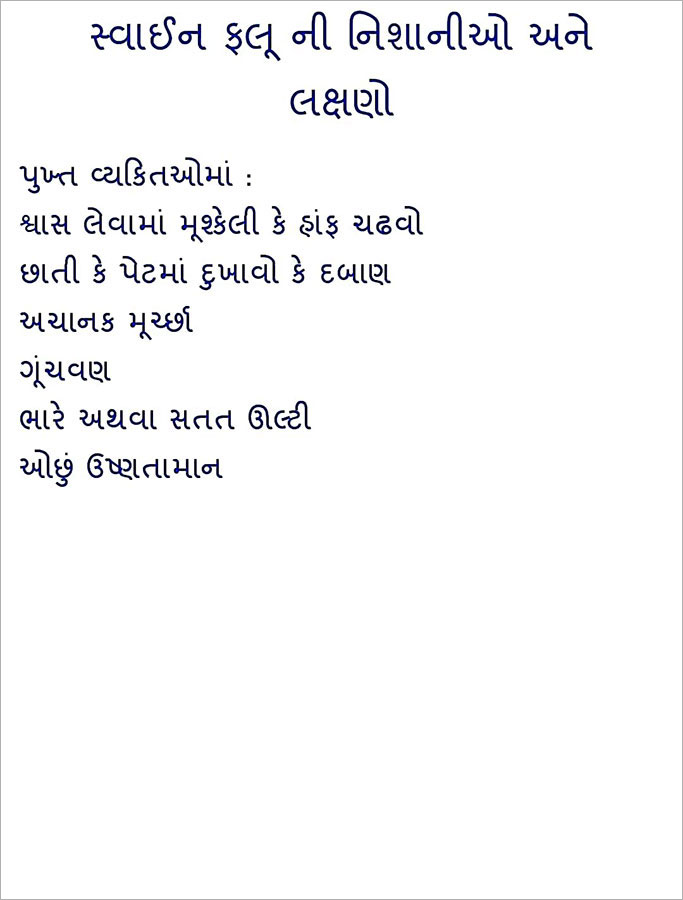 સ્વાઈન ફલૂ ની નિશાનીઓ અને
લક્ષણો
પુખ્ત વ્યકિતઓમાં :
શ્વાસ લેવામાં મૂશ્કેલી કે હાંફ ચઢવો
છાતી કે પેટમાં દુખાવો કે દબાણ
અચાનક મૂર્ચ્છા
ગૂંચવણ
ભારે અથવા સતત ઊલ્ટી
ઓછું ઉષ્ણતામાન